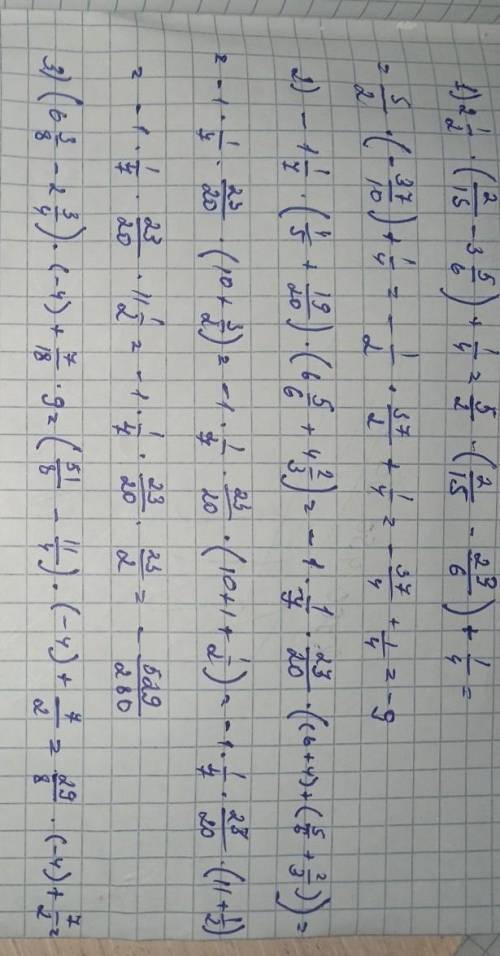 1) 2 1/2 · (2/15 - 3 5/6) + 1/4 = 5/2 · (2/15 - 23/6) + 1/4 =
= 5/2 · (-37/10) + 1/4 = - 1/2 · 37/2 + 1/4 = - 37/4 + 1/4 = -9
2) - 1 1/7 · (1/5 + 19/20) · (6 5/6 + 4 2/3) = - 1 · 1/7 · 23/20 · ((6+4) + (5/6 + 2/3)) =
= - 1 · 1/7 · 23/20 · (10 + 3/2) = - 1 · 1/7 · 23/20 · (10+1+ 1/2) = - 1 · 1/7 · 23/20 · (11 + 1/2)
= - 1 · 1/7 · 23/20 · 11 1/2 = - 1 · 1/7 · 23/20 · 23/2 = - 529/280
3) (6 3/8 - 2 3/4) · (-4) + 7/18 · 9 = (51/8 - 11/4) · (-4) + 7/2 = 29/8 · (-4) + 7/2 =